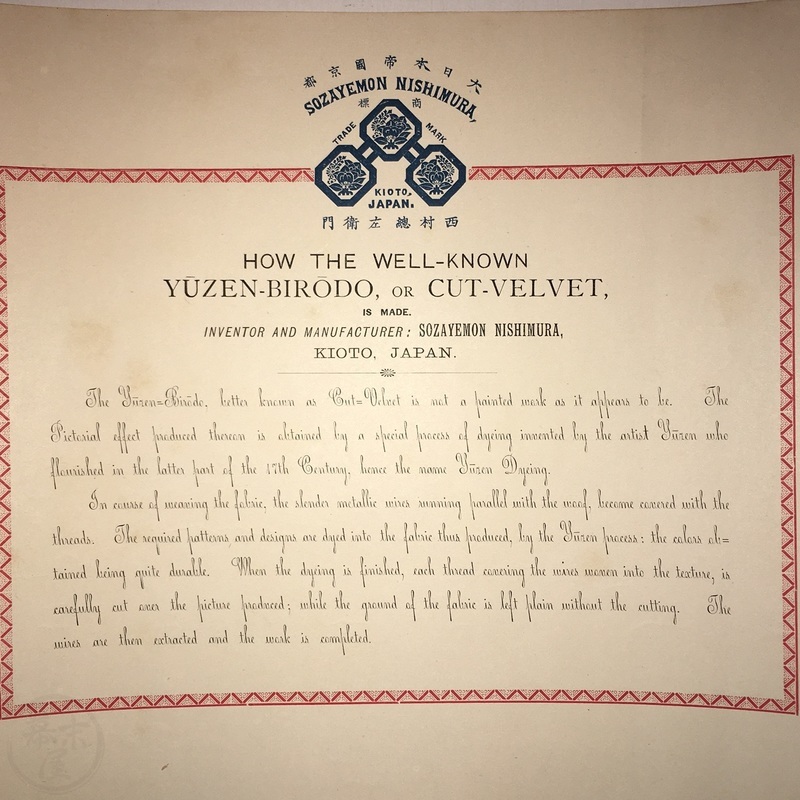 大日本帝國京都
SOZAYEMON NISHIMURA,
商標
TRADE MARK
KIOTO,
JAPAN.
西村總左衛門
HOW THE WELL-KNOWN
YŪZEN-BIRŌDO, OR CUT-VELVET,
IS MADE.
INVENTOR AND MANUFACTURER: SOZAYEMON NISHIMURA,
KIOTO, JAPAN.
The Yūzen=Birōdo, better known as Cut=Velvet is not a painted work as it appears to be. The
Pictorial effect produced thereon is obtained by a special process of dyeing invented by the artist Yūzen who
flourished in the latter part of the 17th Century, hence the name Yūzen Dyeing.
In course of weaving the fabric, the slender metallic wires running parallel with the woof, become covered with the
threads. The required patterns and designs are dyed into the fabric thus produced, by the Yūzen process: the colors ob=
tained being quite durable. When the dyeing is finished, each thread covering the wires woven into the texture, is
carefully cut over the picture produced; while the ground of the fabric is left plain without the cutting. The
wires are then extracted and the work is completed.